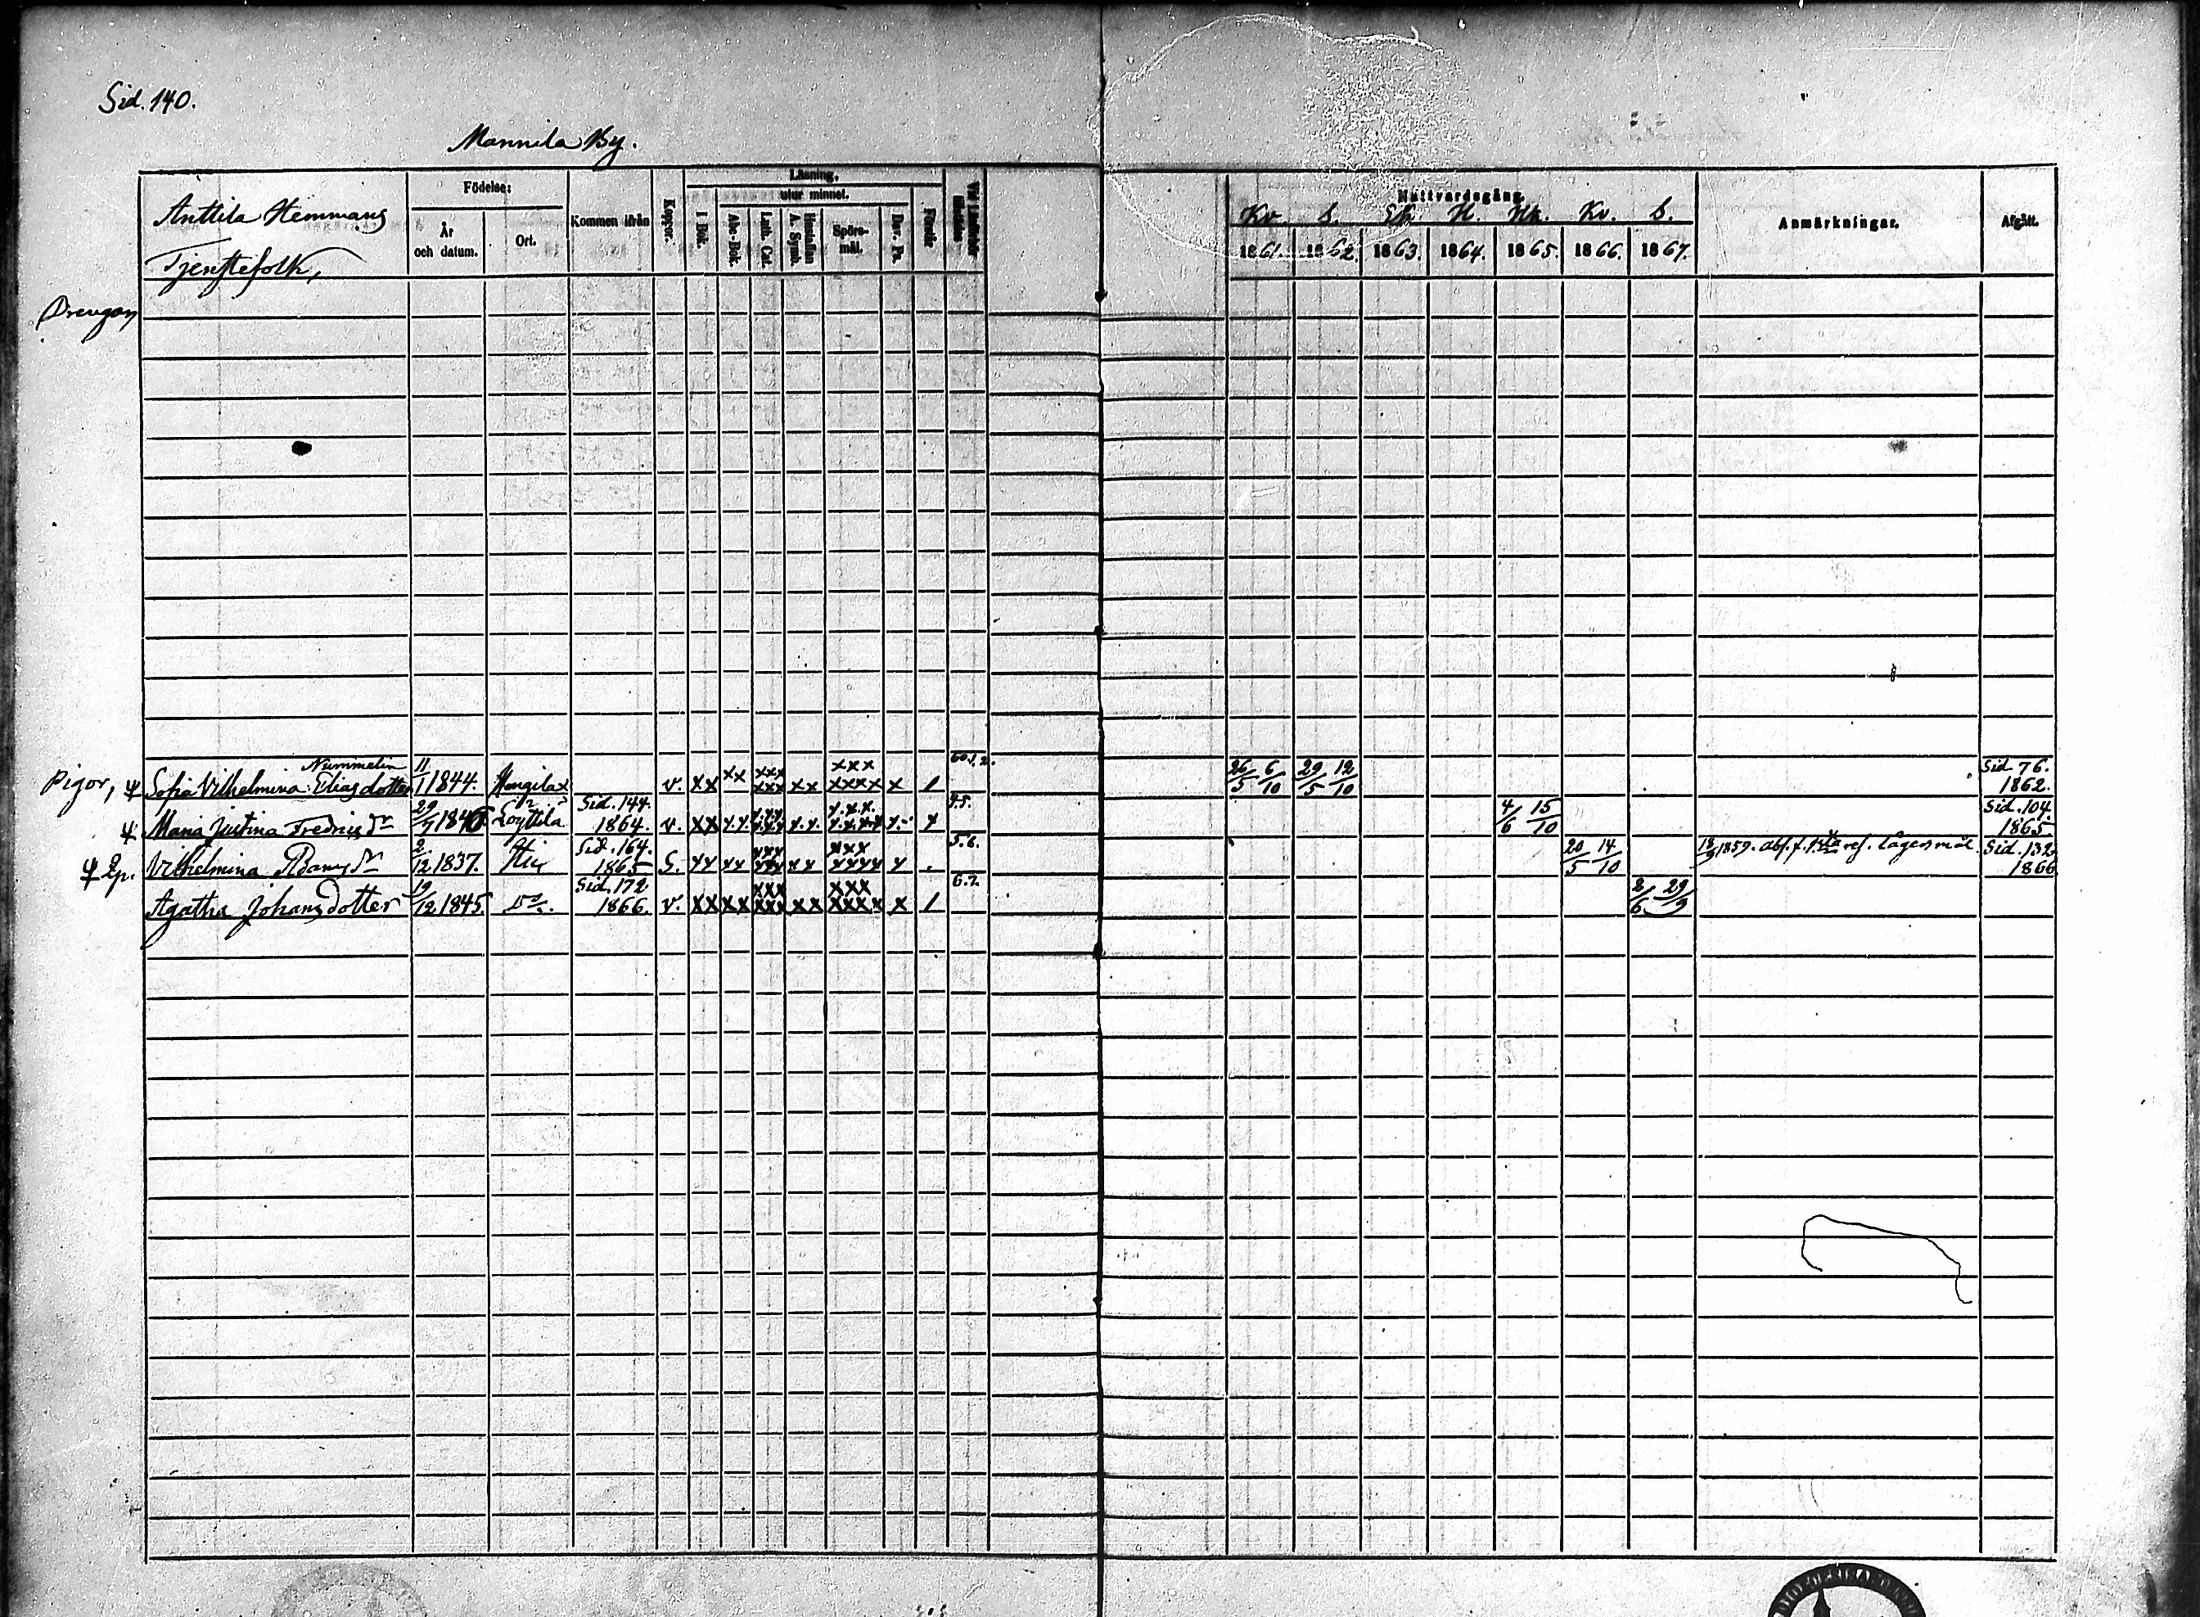 Sid. 140.
Mannila By.
Anttila Hemmans
Tjenstefolk,
Födelse:
År
och datum.
Ort.
Kommen ifrån
Koppor.
Läsning,
utur minnet.
I Bok.
Abc-Bok.
Luth. Cat.
Hustaflan
A. Symb.
Spörs-
mål.
Dav. Ps.
Förstår
Nattvardsgång.
Kv. S. H. Kv. S.
1861. 1862. 1863. 1864. 1865. 1866. 1867.
Anmärkningar.
Afgått.
Drengar
Nummelin
Pigor, Sofia Vilhelmina Eliasdotter 11/1 1844. v. xx xx xxx xxx xx xxx xxxx x / 60.1.2. 26/5 6/10 29/5 12/10 Sid 76. 1862.
Maria Justina Fredrics dr 29/7 1846 Löyttilä Sid. 144. 1864. v. xx xx xxx xxx xx xxx xxxx x 4.5. 4/6 15/10 Sid. 104. 1865
Vilhelmina Adams dr 2/12 1837. Sid. 164. 1865 S. xx xx xxx xxx xx xxx xxxx x . 5.6. 20/5 14/10 1859. abs. f. ref. lägersmål Sid. 132. 1866
Agatha Johansdotter 19/12 1845. do. Sid. 172 1866. v. xx xx xxx xxx xx xxx xxxx x / 6.7. 2/6 29/9